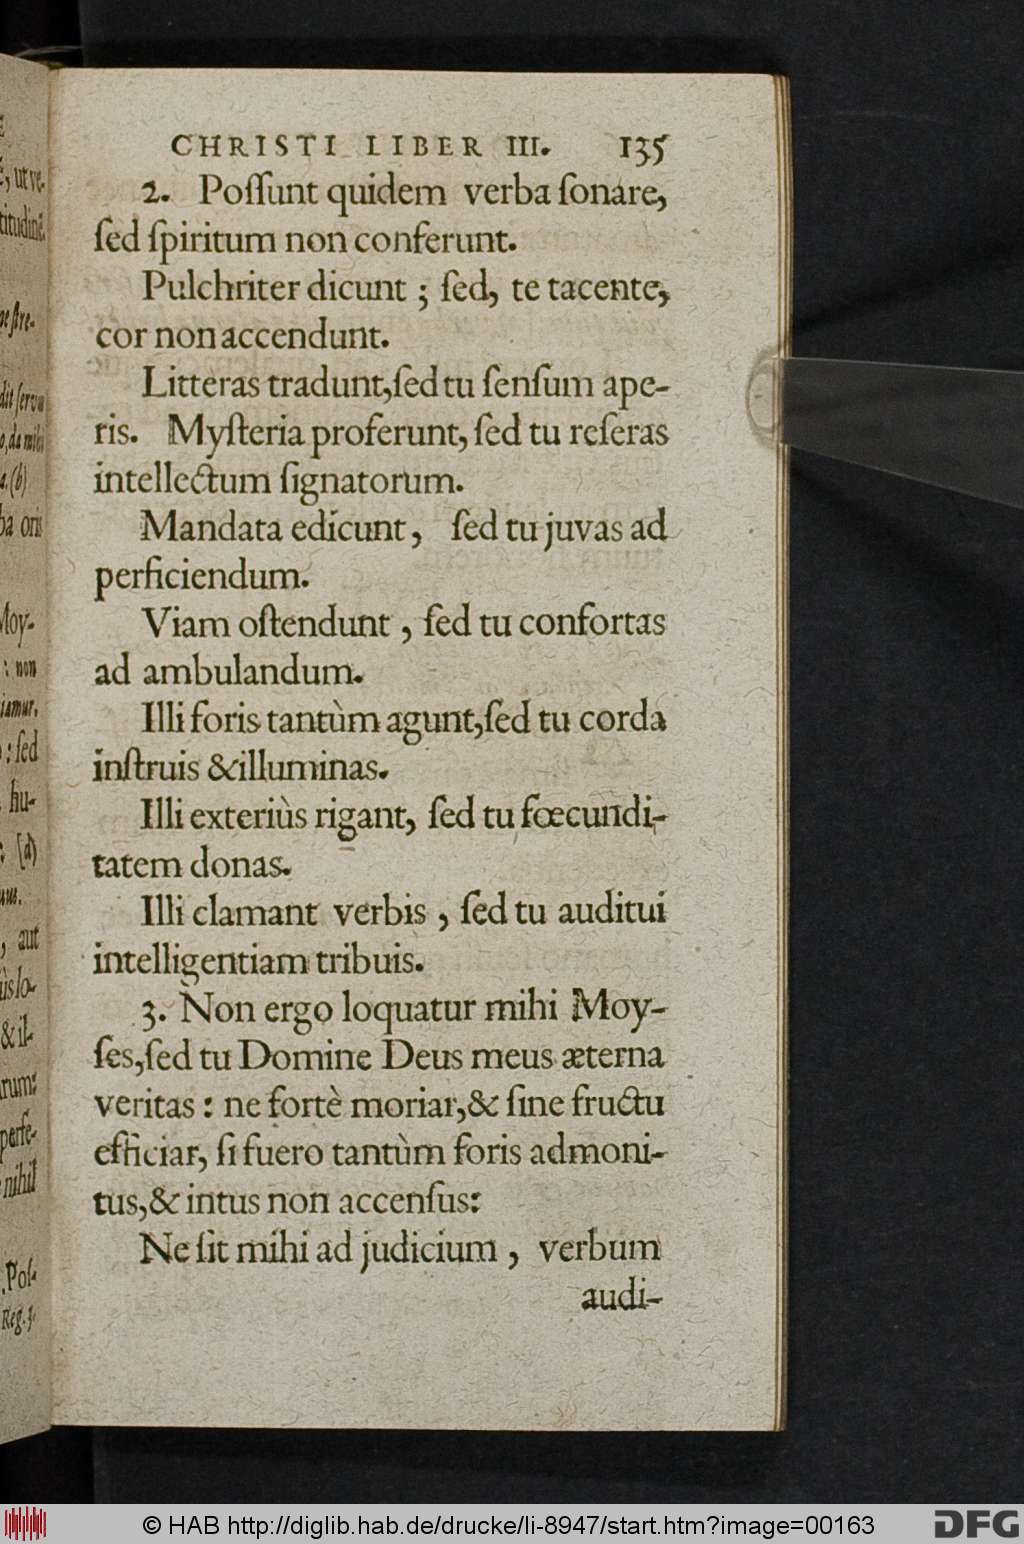 CHRISTI LIBER III. 135
2. Poſſunt quidem verba ſonare,
ſed ſpiritum non conferunt.
Pulchriter dicunt ; ſed, te tacente,
cor non accendunt.
Litteras tradunt, ſed tu ſenſum ape-
ris. Myſteria proferunt, ſed tu reſeras
intellectum ſignatorum.
Mandata edicunt, ſed tu juvas ad
perficiendum.
Viam oſtendunt, ſed tu confortas
ad ambulandum.
Illi foris tantùm agunt, ſed tu corda
inſtruis & illuminas.
Illi exteriùs rigant, ſed tu fœcundi-
tatem donas.
Illi clamant verbis, ſed tu auditui
intelligentiam tribuis.
3. Non ergo loquatur mihi Moy-
ſes, ſed tu Domine Deus meus æterna
veritas: ne fortè moriar, & ſine fructu
efficiar, ſi fuero tantùm foris admoni-
tus, & intus non accenſus:
Ne ſit mihi ad judicium, verbum
audi-
ut ve-
(b)
oris
Moy-
: non
: ſed
hu-
(d)
, aut
& il-
perfe-
nihil
Poſ-
Reg. 3.
© HAB http://diglib.hab.de/drucke/li-8947/start.htm?image=00163
DFG